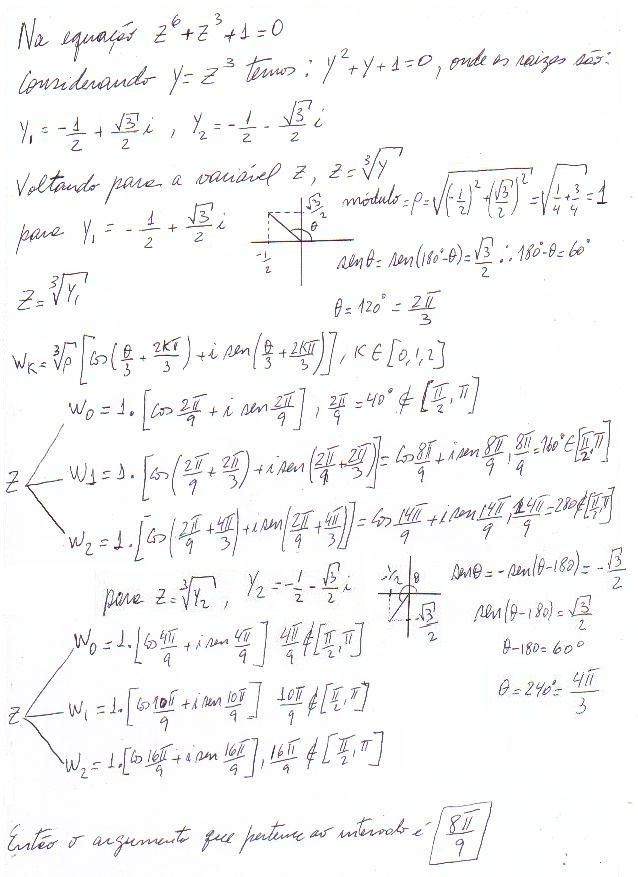 Na equação z⁶ + z³ + 1 = 0
Considerando y = z³ temos: y² + y + 1 = 0, onde as raizes são:
y₁ = -1/2 + √3/2 i , y₂ = -1/2 - √3/2 i
Voltando para a variável z, z = ∛y
módulo = ρ = √((-1/2)² + (√3/2)²) = √(1/4 + 3/4) = 1
para y₁ = -1/2 + √3/2 i
√3/2 θ -1/2
sen θ = sen(180° - θ) = √3/2 ∴ 180° - θ = 60°
z = ∛y₁
θ = 120° = 2π/3
Wₖ = ∛ρ [cos(θ/3 + 2kπ/3) + i sen(θ/3 + 2kπ/3)], k ∈ [0,1,2]
W₀ = 1·[cos 2π/9 + i sen 2π/9], 2π/9 = 40° ∉ [π/2, π]
z W₁ = 1·[cos(2π/9 + 2π/3) + i sen(2π/9 + 2π/3)] = cos 8π/9 + i sen 8π/9, 8π/9 = 160° ∈ [π/2, π]
W₂ = 1·[cos(2π/9 + 4π/3) + i sen(2π/9 + 4π/3)] = cos 14π/9 + i sen 14π/9, 14π/9 = 280 ∉ [π/2, π]
para z = ∛y₂, y₂ = -1/2 - √3/2 i
-1/2 θ -√3/2
sen θ = -sen(θ - 180) = -√3/2
sen(θ - 180) = √3/2
θ - 180 = 60°
θ = 240° = 4π/3
W₀ = 1·[cos 4π/9 + i sen 4π/9] 4π/9 ∉ [π/2, π]
z W₁ = 1·[cos 10π/9 + i sen 10π/9] 10π/9 ∉ [π/2, π]
W₂ = 1·[cos 16π/9 + i sen 16π/9], 16π/9 ∉ [π/2, π]
Então o argumento que pertence ao intervalo é 8π/9